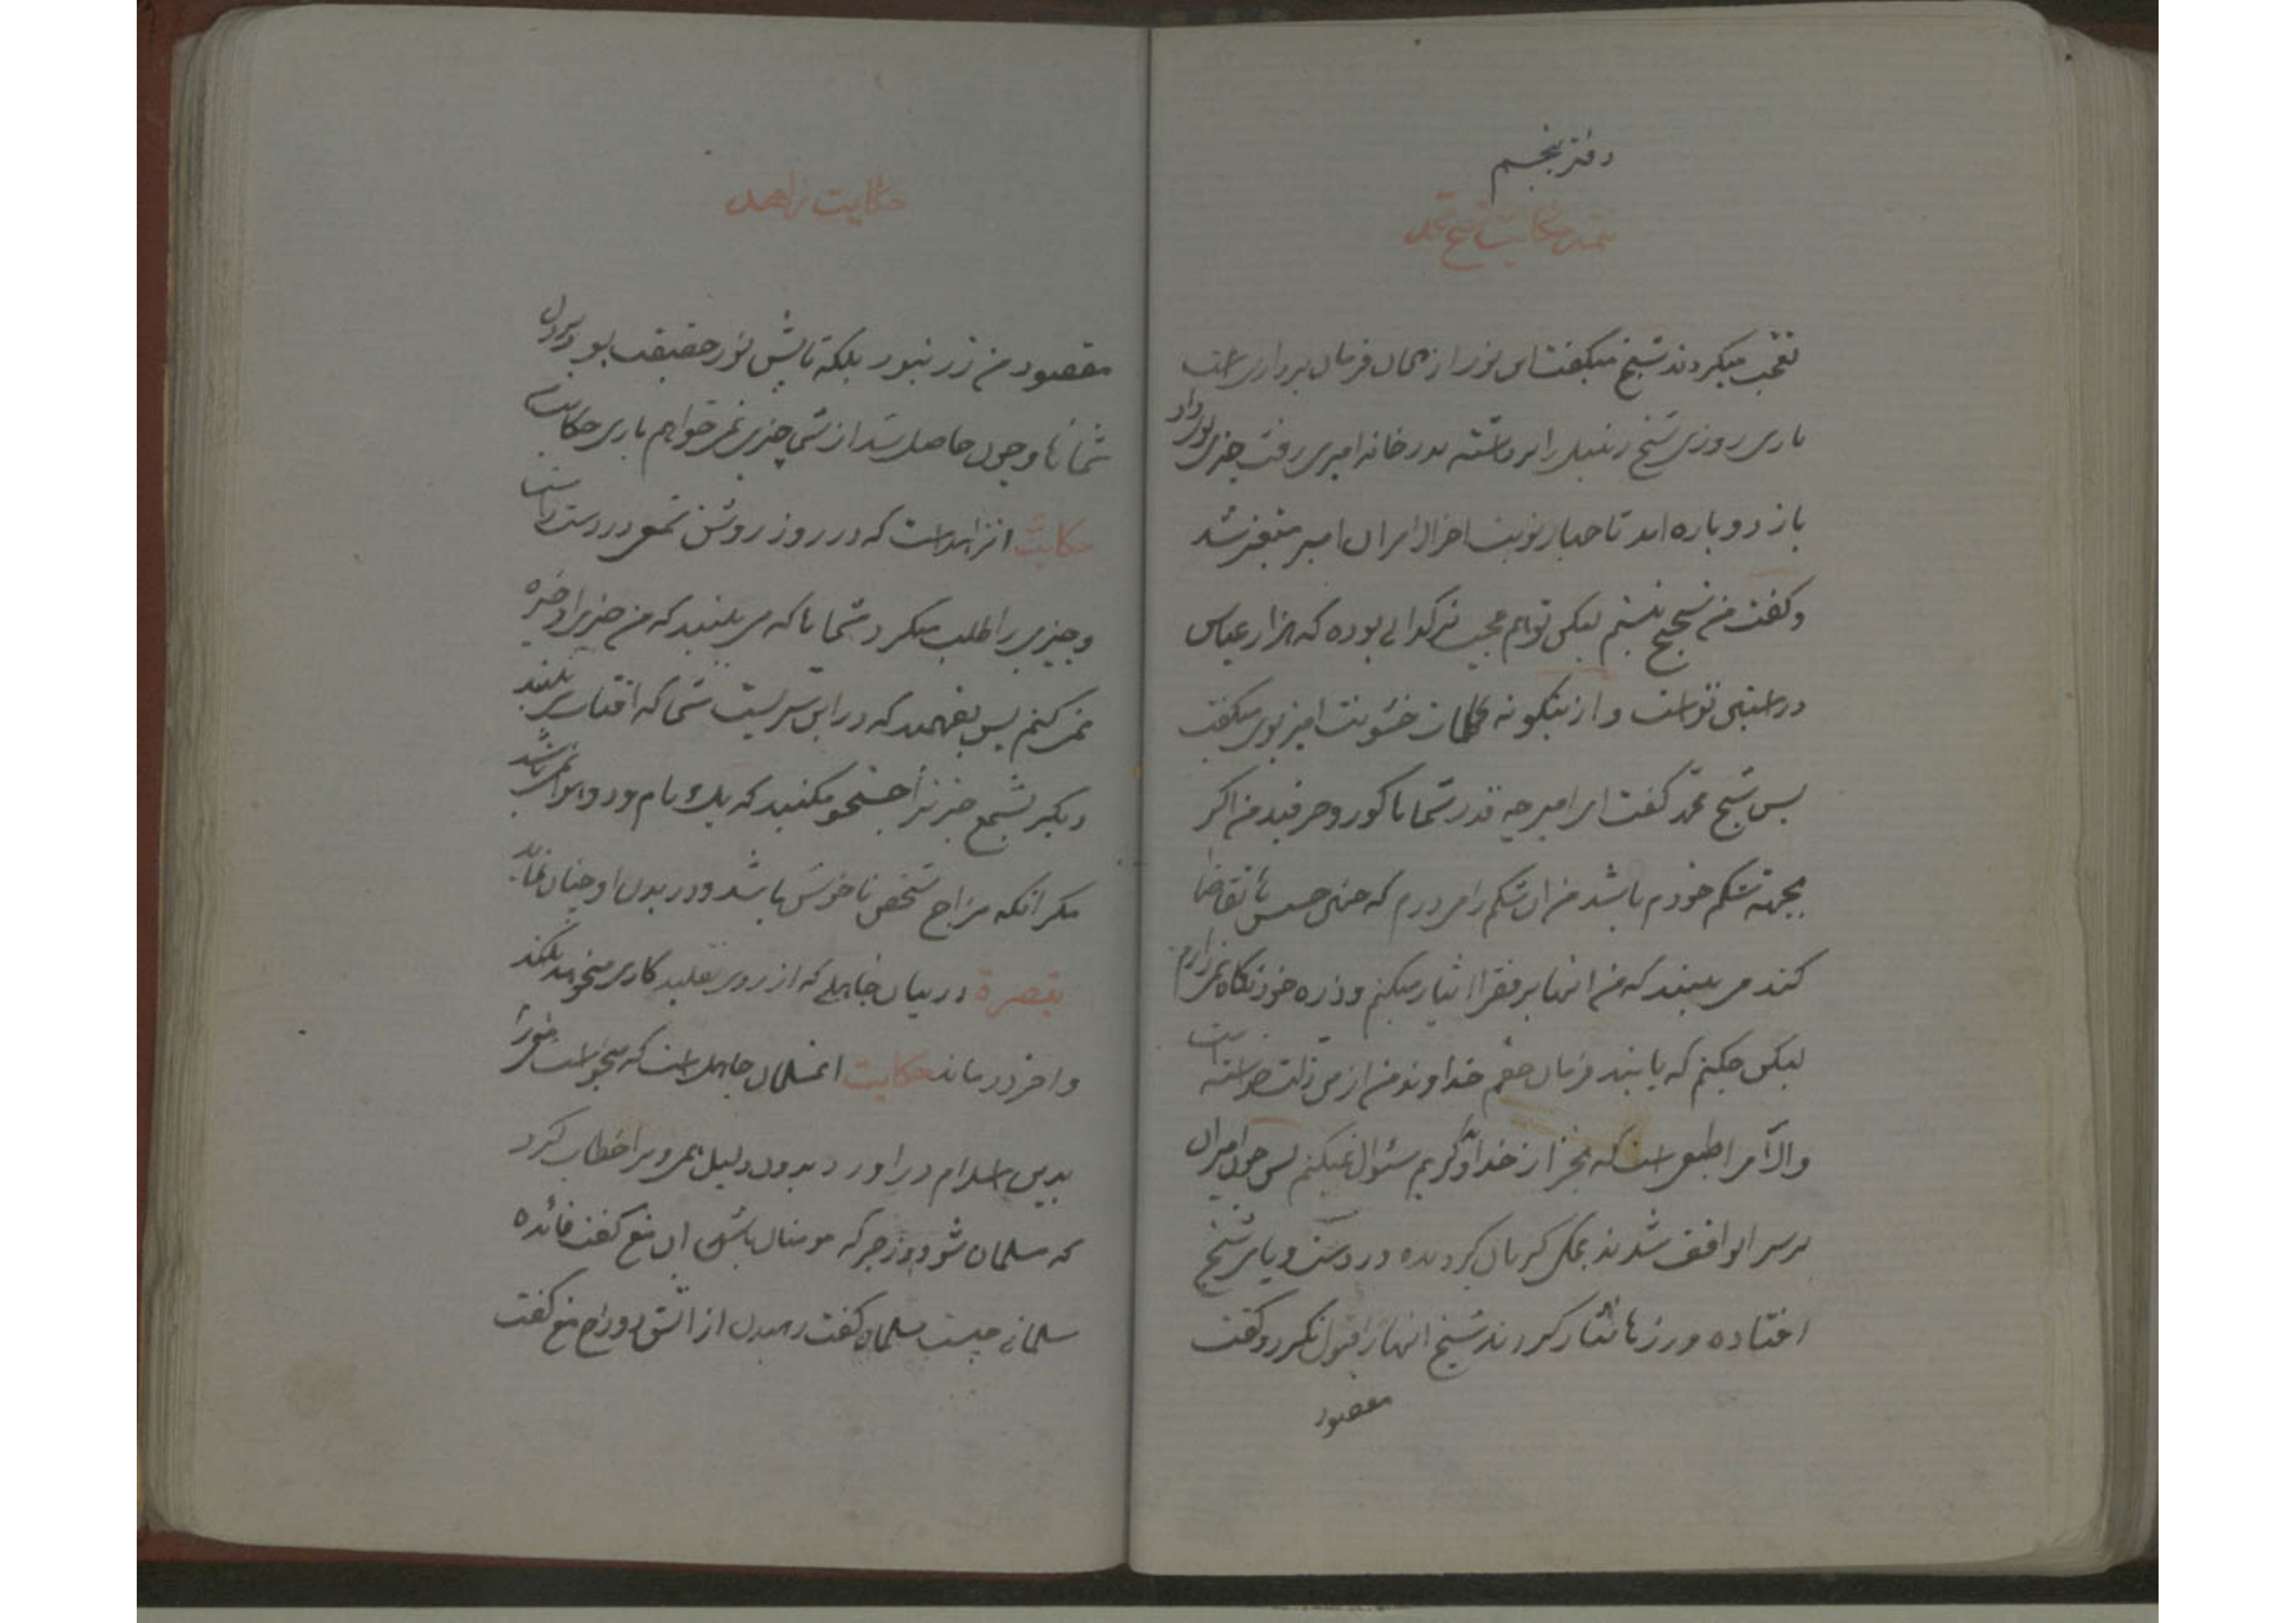 دفتر پنجم
تتمه حکایت شیخ محمد
تعجب میکردند شیخ میگفت این نور از همان فرمان برداری است
باری روزی شیخ زنبیل را برداشته بدر خانه امیری رفت چیزی بوی داد
باز دوباره امد تا چهار نوبت اخرالامر ان امیر متغیر شد
و گفت من شحیح نیستم لیکن تو هم عجب نرگدائی بوده که هزار عباس
در استین تو است و از اینگونه کلمات خشونت امیز بوی میگفت
پس شیخ محمد گفت ای امیر چه قدر شما با کور و حرفید من اگر
بجهته شکم خودم باشد من ان شکم را می درم که چنین حسیس تقاضا
کند می بینید که من اینها بر فقرا ایثار میکنم و ذره خود نگاه نمی دارم
لیکن چکنم که پابند فرمان حقم خداوند من از من ذلت خواسته است
والا مرا طبعی است که بجز از خداوند کریم سئوال نمیکنم پس چون امیران
بر سر او واقف شدند همگی گریان گردیده در دست و پای شیخ
افتاده و زرها نثار کردند شیخ انها را قبول نکرد و گفت
مقصود
حکایت زاهد
مقصود من زر نبود بلکه تابش نور حقیقت بود بر دل
شماها و چون حاصل شد از شما چیزی نمی خواهم باری حکایت
حکایت انزاهد است که در روز روشن شمعی در دست داشت
و چیزی را طلب میکرد شماها که می بینید که من چیزی را ذخیره
نمی کنم پس بفهمید که در این سریست شما که افتاب می بینید
دیگر بشمع چیزیرا جستجو مکنید که یک بام و دو هوا نمی باشد
مگر انکه مزاج شخص ناخوش باشد و در بدن او چنان نماید
تبصرة در بیان جاهلی که از روی تقلید کاری میخواهد بکند
و اخر درماند حکایت انمسلمان جاهل است که میخواست مغی را
بدین اسلام دراورد بدون دلیل همی ویرا خطاب کرد
که مسلمان شو و بزجر که مومنان باشی ان مغ گفت فائده
مسلمانی چیست مسلمان گفت رهیدن از اتش دوزخ مغ گفت